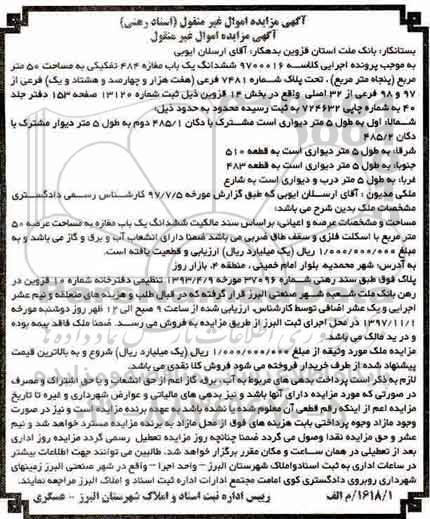 آگهی مزایده اموال غیر منقول (اسناد رهنی)
آگهی مزایده اموال غیر منقول
بستانکار: بانک ملت استان قزوین بدهکار: آقای ارسلان ایوبی
به موجب پرونده اجرایی کلاسه 9700016 ششدانگ یک باب مغازه 484 تفکیکی به مساحت 50 متر
مربع (پنجاه متر مربع)، تحت پلاک شماره 7481 فرعی (هفت هزار و چهارصد و هشتاد و یک) فرعی از
97 و 98 فرعی از 32 اصلی واقع در بخش 14 قزوین ذیل ثبت شماره 13120 صفحه 153 دفتر جلد
40 به شماره چاپی 724632 به ثبت رسیده محدود به حدود ذیل:
شمالا: اول به طول 5 متر دیواری است مشترک با دکان 485/1 دوم به طول 5 متر دیوار مشترک با
دکان 485/2
شرقا: به طول 5 متر دیواری است به قطعه 510
جنوبا: به طول 5 متر دیواری است به قطعه 483
غربا: به طول 5 متر درب و دیواری است به شارع
ملکی مدیون: آقای ارسلان ایوبی که طبق گزارش مورخه 97/7/5 کارشناس رسمی دادگستری
مشخصات ملک بدین شرح می باشد:
مساحت و مشخصات عرصه و اعیانی، براساس سند مالکیت ششدانگ یک باب مغازه به مساحت عرصه 50
متر مربع با اسکلت فلزی و سقف طاق ضربی می باشد ضمنا دارای انشعاب آب و برق و گاز می باشد و به
مبلغ 1/000/000/000 ریال (یک میلیارد ریال) ارزیابی و قطعیت یافته است.
به آدرس: شهر محمدیه بلوار امام خمینی، منطقه 4، بازار روز
پلاک فوق طبق سند رهنی شماره 37096 مورخه 1393/4/9 تنظیمی دفترخانه شماره 10 قزوین در
رهن بانک ملت شعبه شهر صنعتی البرز قرار گرفته که در قبال طلب و هزینه های متعلقه و نیم عشر
اجرایی و یک عشر اضافی توسط کارشناس، ارزیابی شده از ساعت 9 صبح الی 12 ظهر روز دوشنبه مورخه
1397/11/1 در محل اجرای ثبت البرز از طریق مزایده به فروش می رسد. ضمنا ملک فاقد بیمه بوده
و در ید مالک می باشد.
مزایده ملک مورد وثیقه از مبلغ 1/000/000/000 ریال (یک میلیارد ریال) شروع و به بالاترین قیمت
پیشنهاد شده از طرف خریدار فروخته می شود فروش کلا نقدی می باشد.
لازم به ذکر است پرداخت بدهی های مربوط به آب، برق، گاز اعم از حق انشعاب و یا حق اشتراک و مصرف
در صورتی که مورد مزایده دارای آنها باشد و نیز بدهی های مالیاتی و عوارض شهرداری و غیره تا تاریخ
مزایده اعم از اینکه رقم قطعی آن معلوم شده یا نشده باشد به عهده برنده مزایده است و نیز در صورت
وجود مازاد وجوه پرداختی بابت هزینه های فوق از محل مازاد به برنده مزایده مسترد خواهد شد و نیم
عشر و حق مزایده نقدا وصول می گردد ضمنا چنانچه روز مزایده تعطیل رسمی گردد مزایده روز اداری
بعد از تعطیلی در همان ساعت و مکان مقرر برگزار خواهد شد. طالبین می توانند جهت اطلاعات بیشتر
در ساعات اداری به ثبت اسناد و املاک شهرستان البرز – واحد اجرا – واقع در شهر صنعتی البرز زمینهای
شهرداری روبروی دادگستری کوی امامت مجتمع ادارات اداره ثبت اسناد و املاک البرز مراجعه نمایند.
1618/1/م الف رییس اداره ثبت اسناد و املاک شهرستان البرز - عسگری